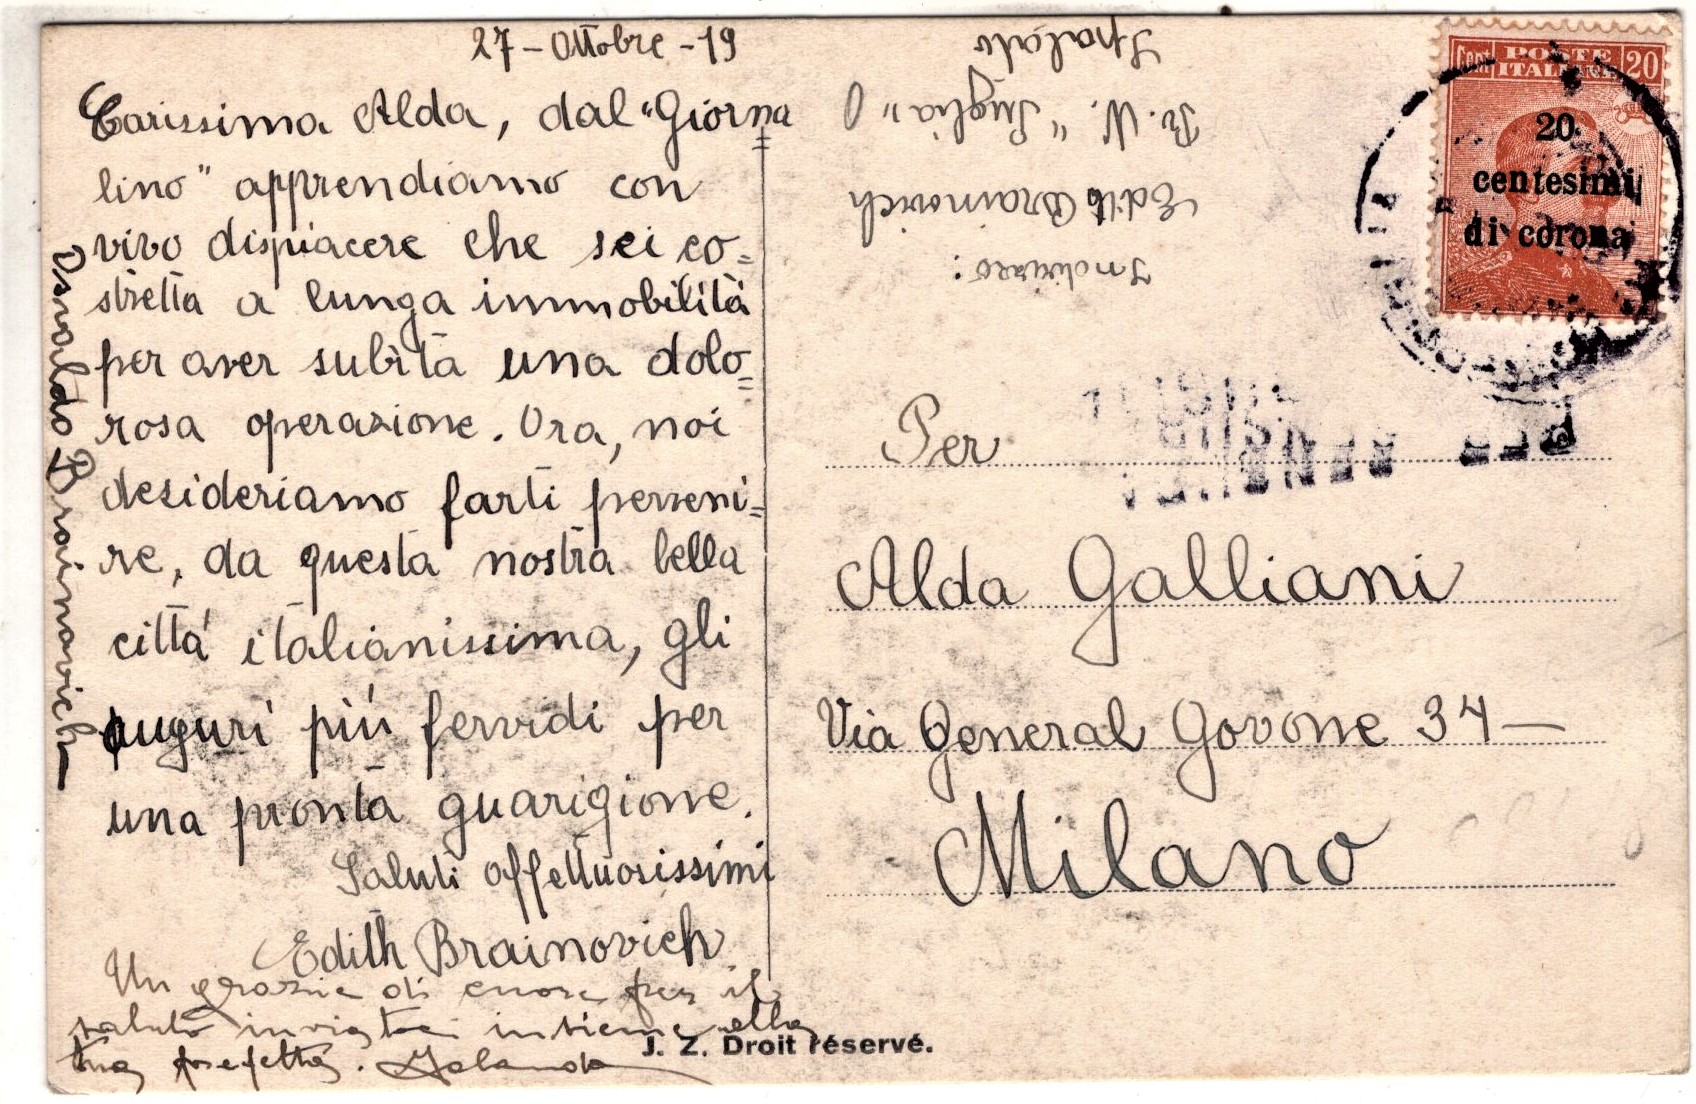 27 - Ottobre - 19
Carissima Alda, dal "Giorna=
lino" apprendiamo con
vivo dispiacere che sei co=
stretta a lunga immobilità
per aver subìta una dolo=
rosa operazione. Ora, noi
desideriamo farti perveni=
re, da questa nostra bella
città italianissima, gli
auguri più fervidi per
una pronta guarigione.
Saluti affettuosissimi
Edith Brainovich
Un grazie di cuore per il
saluto inviatoci insieme alla
tua
Osvaldo Brainovich
Indirizzo:
Edith Brainovich
R. N. "Puglia"
Spalato
Cent POSTE ITALIANE 20
20
centesimi
di corona
Per
Alda Galliani
Via General Govone 34 —
Milano
J. Z. Droit réservé.